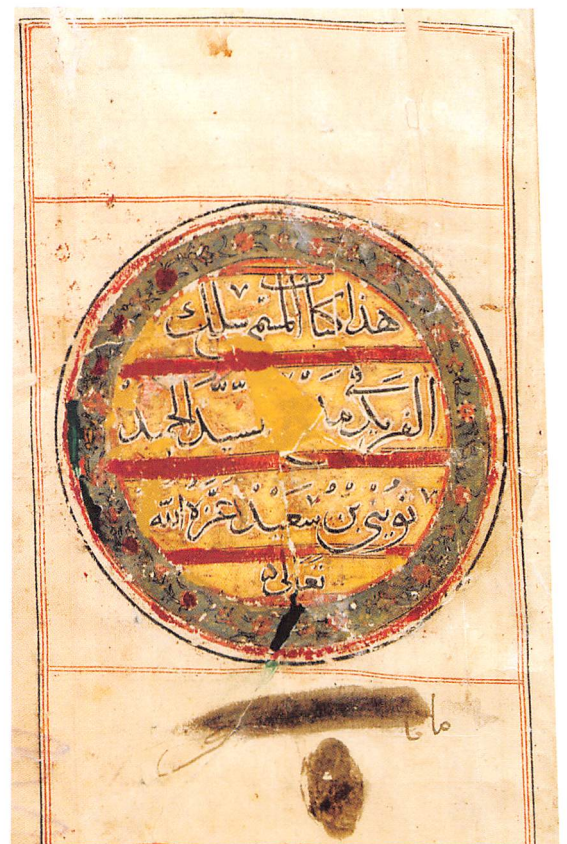 هذا كتاب المسمى سلك
الفريد في مدح سيّد الحميد
ثويني بن سعيد اعزه الله
تعالى